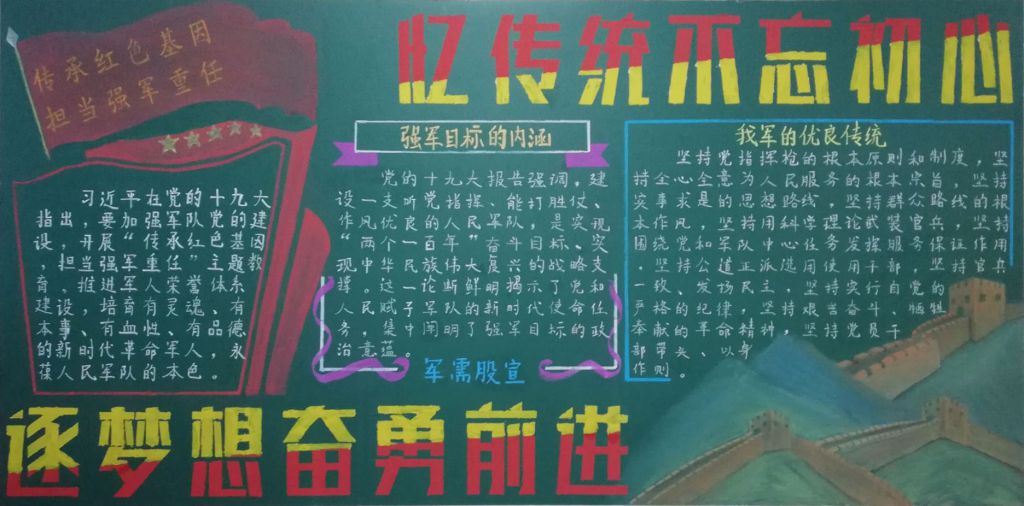 忆传统不忘初心
传承红色基因
担当强军重任
习近平在党的十九大
指出，要加强军队党的建
设，开展“传承红色基因
，担当强军重任”主题教
育，推进军人荣誉体系
建设，培育有灵魂、有
本事、有血性、有品德
的新时代革命军人，永
葆人民军队的本色。
强军目标的内涵
党的十九大报告强调，建
设一支听党指挥、能打胜仗、
作风优良的人民军队，是实现
“两个一百年”奋斗目标、实
现中华民族伟大复兴的战略支
撑。这一论断鲜明揭示了党和
人民赋予军队的新时代使命任
务，集中阐明了强军目标的政
治意蕴。
军需股宣
我军的优良传统
坚持党指挥枪的根本原则和制度，坚
持全心全意为人民服务的根本宗旨，坚持
实事求是的思想路线，坚持群众路线的根
本作风，坚持用科学理论武装官兵，坚持
围绕党和中心任务发挥服务保证作用
，坚持公道正派选用使用干部，坚持官兵
一致、发扬民主，坚持实行自觉的
严格的纪律，坚持艰苦奋斗、牺牲
奉献的革命精神，坚持党员干
部带头、以身
作则。
逐梦想奋勇前进